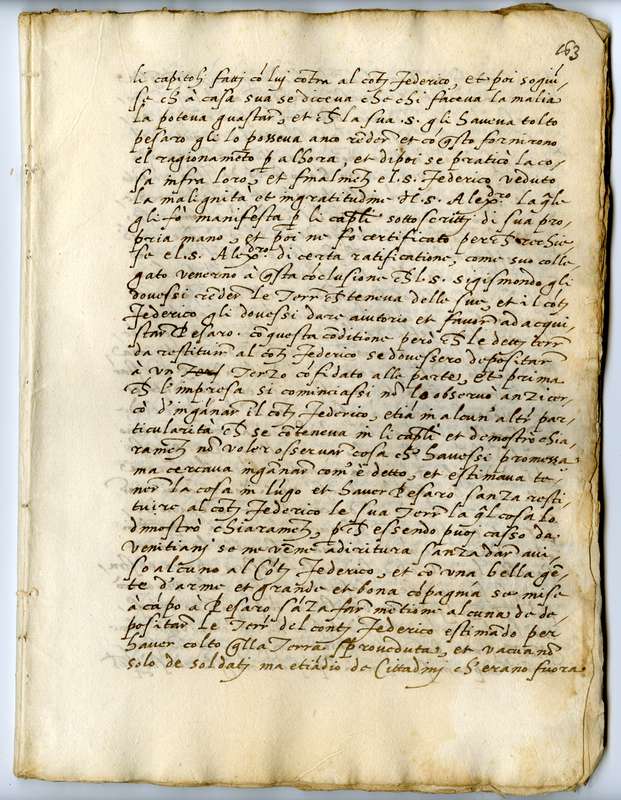 163
li capitoli fatti cō luj cōtra al cotj Federico, et poi sogiū-
se ch à casa sua se diceva che chi faceva la malia
la poteva guastar, et ch la sua .s. gli haveva tolto
pesaro gli lo posseva anco rēder et cō qsto fornirono
el ragionamēto p alhora, et dipoi se praticò la co-
sa infra loro, et finalmētj el .s. Federico veduto
la malignità et ingratitudine dl .s. Alexdro la qle
gli fò manifesta p li capli sotto scrittj di sua pro-
pria mano, et poi ne fò certificato perch rechie-
se el .s. Alexdro di certa ratificatione, come suo colle-
gato venerno à qsta cōclusione ch l .s. sigismondo gli
dovessi rēder le Terr ch teneva delle sue, et il cotj
Federico gli dovessi dare aiutorio et favor ad acqui-
star Pesaro. cō questa cōditione però ch le dettj terr
da restituir al cotj Federico se dovessero depositar
à vn Terzo cōfidato alle parte, et prima
ch l'impresa si cominciassi nō lo observò anzi cer-
cò d'ingānar il cotj Federico, etiā in alcun' altr par-
ticularità ch se cōteneva in li capli et demostrò chia-
ramētj nō voler osservar cosa ch havessi promessa
ma cercava ingānar com' è detto, et estimava te-
ner la cosa in lūgo et haver Pesaro sanza resti-
tuire al cotj Federico le sua Terr la ql cosa lo
dmostrò chiaramētj, pch essendo puoi casso da
venitianj se ne vēne adiritura sanza dar avi-
so alcuno al Cotj Federico, et cō vna bella gē-
te d'arme et grande et bona cōpagnia se mise
à cāpo a Pesaro sāza far mētione alcuna de de-
positar le Terr del contj Federico estimādo per
haver colto qlla Terra sproveduta, et vacua nō
solo de soldatj ma etiādio de Cittadinj ch erano fuora